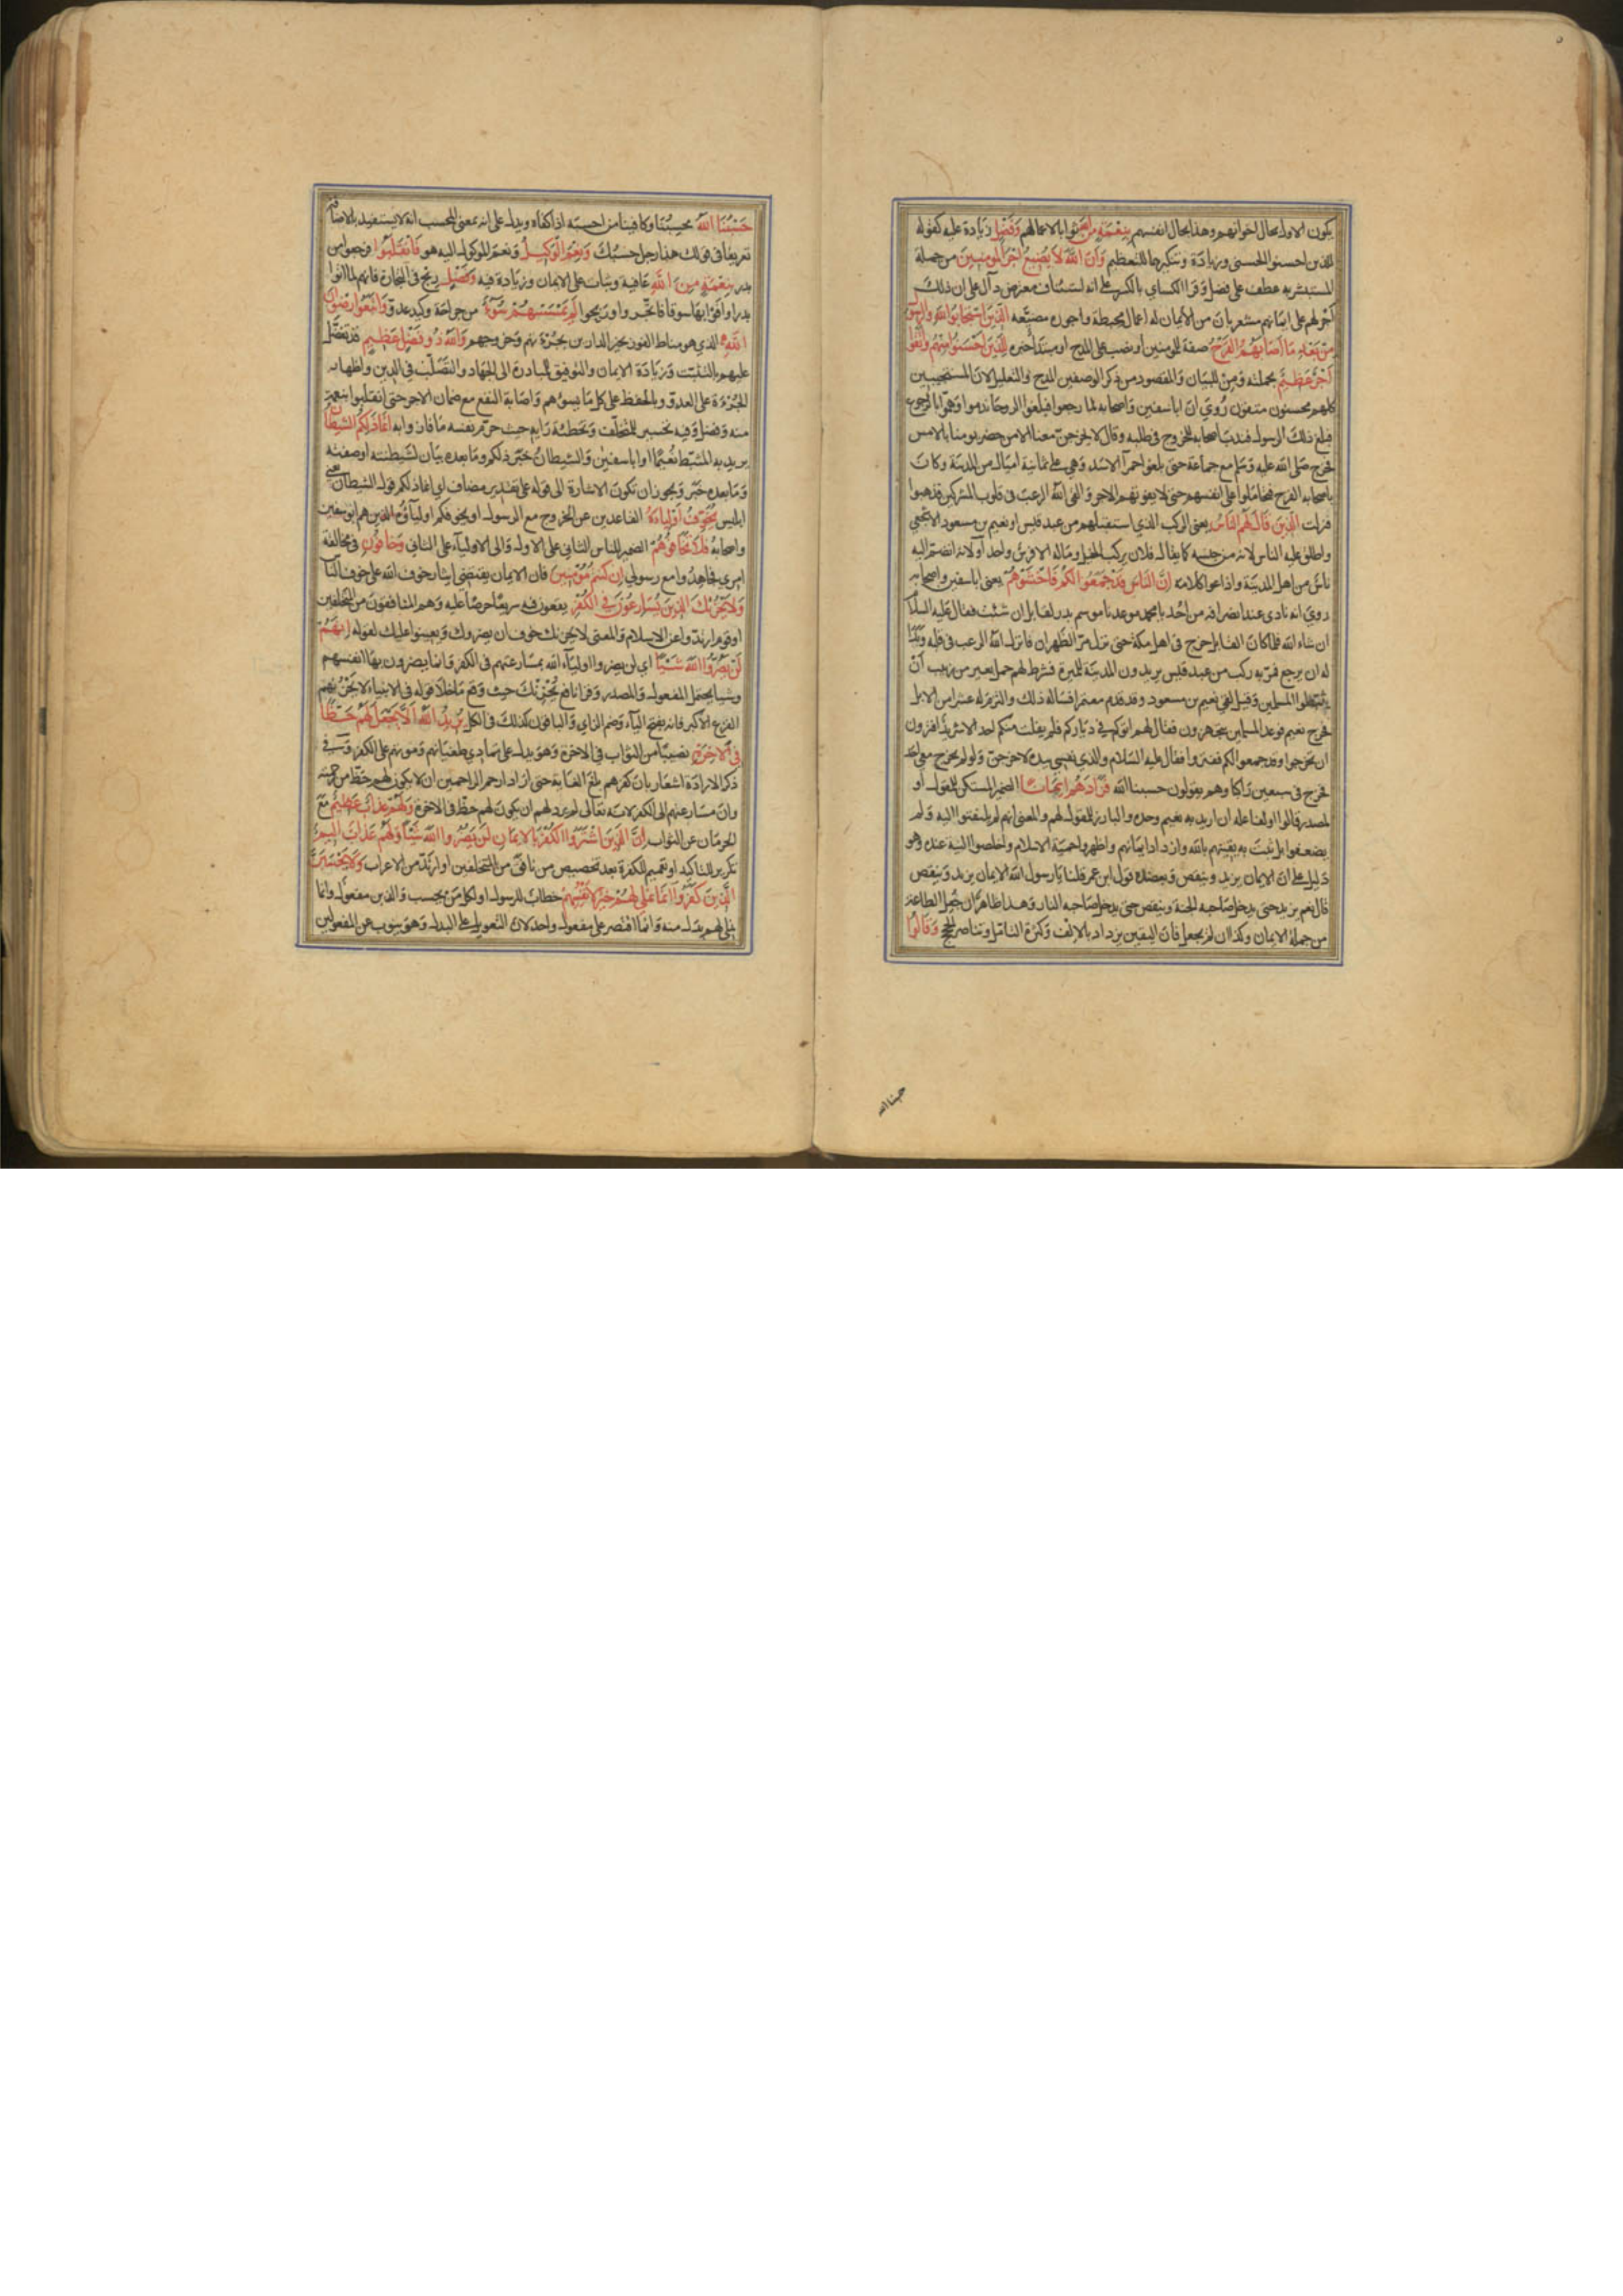 يكون الاول بحال اخوانهم وهذا بحال انفسهم بنعمة من الله ثوابا لاعمالهم وفضل زيادة عليه كقوله
للذين احسنوا الحسنى وزيادة وتنكيرهما للتعظيم وان الله لا يضيع اجر المؤمنين من جملة
المستبشر به عطف على فضل وقرا الكساي بالكسر على انه استيناف معترض دال على ان ذلك
اجر لهم على ايمانهم مشعر بان من لا ايمان له اعماله محبطة واجوره مضيعه الذين استجابوا لله والرسول
من بعد ما اصابهم القرح صفة للمؤمنين او نصب على المدح او مبتدا خبره للذين احسنوا منهم واتقوا
اجر عظيم بجملته ومن للبيان والمقصود من ذكر الوصفين المدح والتعليل لان المستجيبين
كلهم محسنون متقون روي ان ابا سفين واصحابه لما رجعوا فبلغوا الروحا ندموا وهموا بالرجوع
فبلغ ذلك الرسول فندب اصحابه للخروج في طلبه وقال لا يخرجن معنا الا من حضر يومنا بالامس
فخرج صلى الله عليه وسلم مع جماعة حتى بلغوا حمرآ الاسد وهي على ثمانية اميال من المدينة وكان
باصحابه القرح فتحاملوا على انفسهم حتى لا يفوتهم الاجر والقى الله الرعب في قلوب المشركين فذهبوا
فنزلت الذين قال لهم الناس يعني الركب الذي استقبلهم من عبد قيس او نعيم بن مسعود الاشجعي
واطلق عليه الناس لانه من جنسه كما يقال فلان يركب الخيل وماله الا فرس واحد او لانه انضم اليه
ناس من اهل المدينة واذاعوا كلامه ان الناس قد جمعوا لكم فاخشوهم يعني ابا سفين واصحابه
روي انه نادى عند انصرافه من احد يا محمد موعدنا موسم بدر لقابل ان شئت فقال عليه السلام
ان شاء الله فلما كان القابل خرج في اهل مكة حتى نزل مر الظهران فانزل الله الرعب في قلبه وبدا
له ان يرجع فمر به ركب من عبد قيس يريدون المدينة للميرة فشرط لهم حمل بعير من زبيب ان
يثبطوا المسلمين وقيل لقي نعيم بن مسعود وقد قدم معتمرا فساله ذلك والتزم له عشرا من الابل
فخرج نعيم فوجد المسلمين يتجهزون فقال لهم اتوكم في دياركم فلم يفلت منكم احد الا شريد افترون
ان تخرجوا وقد جمعوا لكم ففتروا فقال عليه السلام والذي نفسي بيده لاخرجن ولو لم يخرج معي احد
فخرج في سبعين راكبا وهم يقولون حسبنا الله فزادهم ايمانا الضمير المستكن للمقول او
لمصدر قالوا او لفاعله ان اريد به نعيم وحده والبارز للمقول لهم والمعنى انهم لم يلتفتوا اليه ولم
يضعفوا بل ثبت به يقينهم بالله وازداد ايمانهم واظهروا حمية الاسلام واخلصوا النية عنده وهو
دليل على ان الايمان يزيد وينقص ويعضده قول ابن عمر قلنا يا رسول الله الايمان يزيد وينقص
قال نعم يزيد حتى يدخل صاحبه الجنة وينقص حتى يدخل صاحبه النار وهذا ظاهر ان جعل الطاعة
من جملة الايمان وكذا ان لم يجعل فان اليقين يزداد بالالف وكثرة التامل وتناصر الحجج وقالوا
حسبنا الله
حسبنا الله محسبنا وكافينا من احسبه اذا كفاه ويدل على انه بمعنى المحسب انه لا يستفيد بالاضافة
تعريفا في قولك هذا رجل حسبك ونعم الوكيل ونعم الموكول اليه هو فانقلبوا فرجعوا من
بدر بنعمة من الله عافية وثبات على الايمان وزيادة فيه وفضل ربح في التجارة فانهم لما اتوا
بدرا وافوا بها سوقا فاتجروا وربحوا لم يمسسهم سوء من جراحة وكيد عدو واتبعوا رضوان
الله الذي هو مناط الفوز بخير الدارين بجرءتهم وخروجهم والله ذو فضل عظيم قد تفضل
عليهم بالتثبت وزيادة الايمان والتوفيق للمبادرة الى الجهاد والتصلب في الدين واظهار
الجرءة على العدو وبالحفظ على كل ما يسوءهم واصابة النفع مع ضمان الاجر حتى انقلبوا بنعمة
منه وفضل وفيه تحسير للمتخلف وتخطئة رايه حيث حرم نفسه ما فازوا به انما ذلكم الشيطان
يريد به المثبط نعيما او ابا سفين والشيطان خبر ذلكم وما بعده بيان لشيطنته او صفته
وما بعده خبر ويجوز ان تكون الاشارة الى قوله على تقدير مضاف اي انما ذلكم قول الشيطان يعني
ابليس يخوف اولياءه القاعدين عن الخروج مع الرسول او يخوفكم اولياؤه الذين هم ابو سفين
واصحابه فلا تخافوهم الضمير للناس الثاني على الاول والى الاولياء على الثاني وخافون في مخالفة
امري فجاهدوا مع رسولي ان كنتم مؤمنين فان الايمان يقتضي ايثار خوف الله على خوف الناس
ولا يحزنك الذين يسارعون في الكفر يقعون فيه سريعا حرصا عليه وهم المنافقون من المتخلفين
او قوم ارتدوا عن الاسلام والمعنى لا يحزنك خوف ان يضروك ويعينوا عليك لقوله انهم
لن يضروا الله شيئا اي لن يضروا اولياء الله بمسارعتهم في الكفر وانما يضرون بها انفسهم
وشيا يحتمل المفعول والمصدر وقرا نافع يحزنك حيث وقع ما خلا قوله في الانبياء لا يحزنهم
الفزع الاكبر فانه بفتح الياء وضم الزاي والباقون كذلك في الكل يريد الله الا يجعل لهم حظا
في الاخرة نصيبا من الثواب في الاخرة وهو يدل على تمادي طغيانهم وموتهم على الكفر وفي
ذكر الارادة اشعار بان كفرهم بلغ الغاية حتى اراد ارحم الراحمين ان لا يكون لهم حظ من رحمته
وان مسارعتهم الى الكفر لانه تعالى لم يرد لهم ان يكون لهم حظ في الاخرة ولهم عذاب عظيم مع
الحرمان عن الثواب ان الذين اشتروا الكفر بالايمان لن يضروا الله شيئا ولهم عذاب اليم
تكرير للتاكيد او تعميم للكفرة بعد تخصيص من نافق من المتخلفين او ارتد من الاعراب ولا يحسبن
الذين كفروا انما نملي لهم خير لانفسهم خطاب للرسول او لكل من يحسب والذين مفعول وانما
نملي لهم بدل منه وانما اقتصر على مفعول واحد لان التعويل على البدل وهو ينوب عن المفعولين